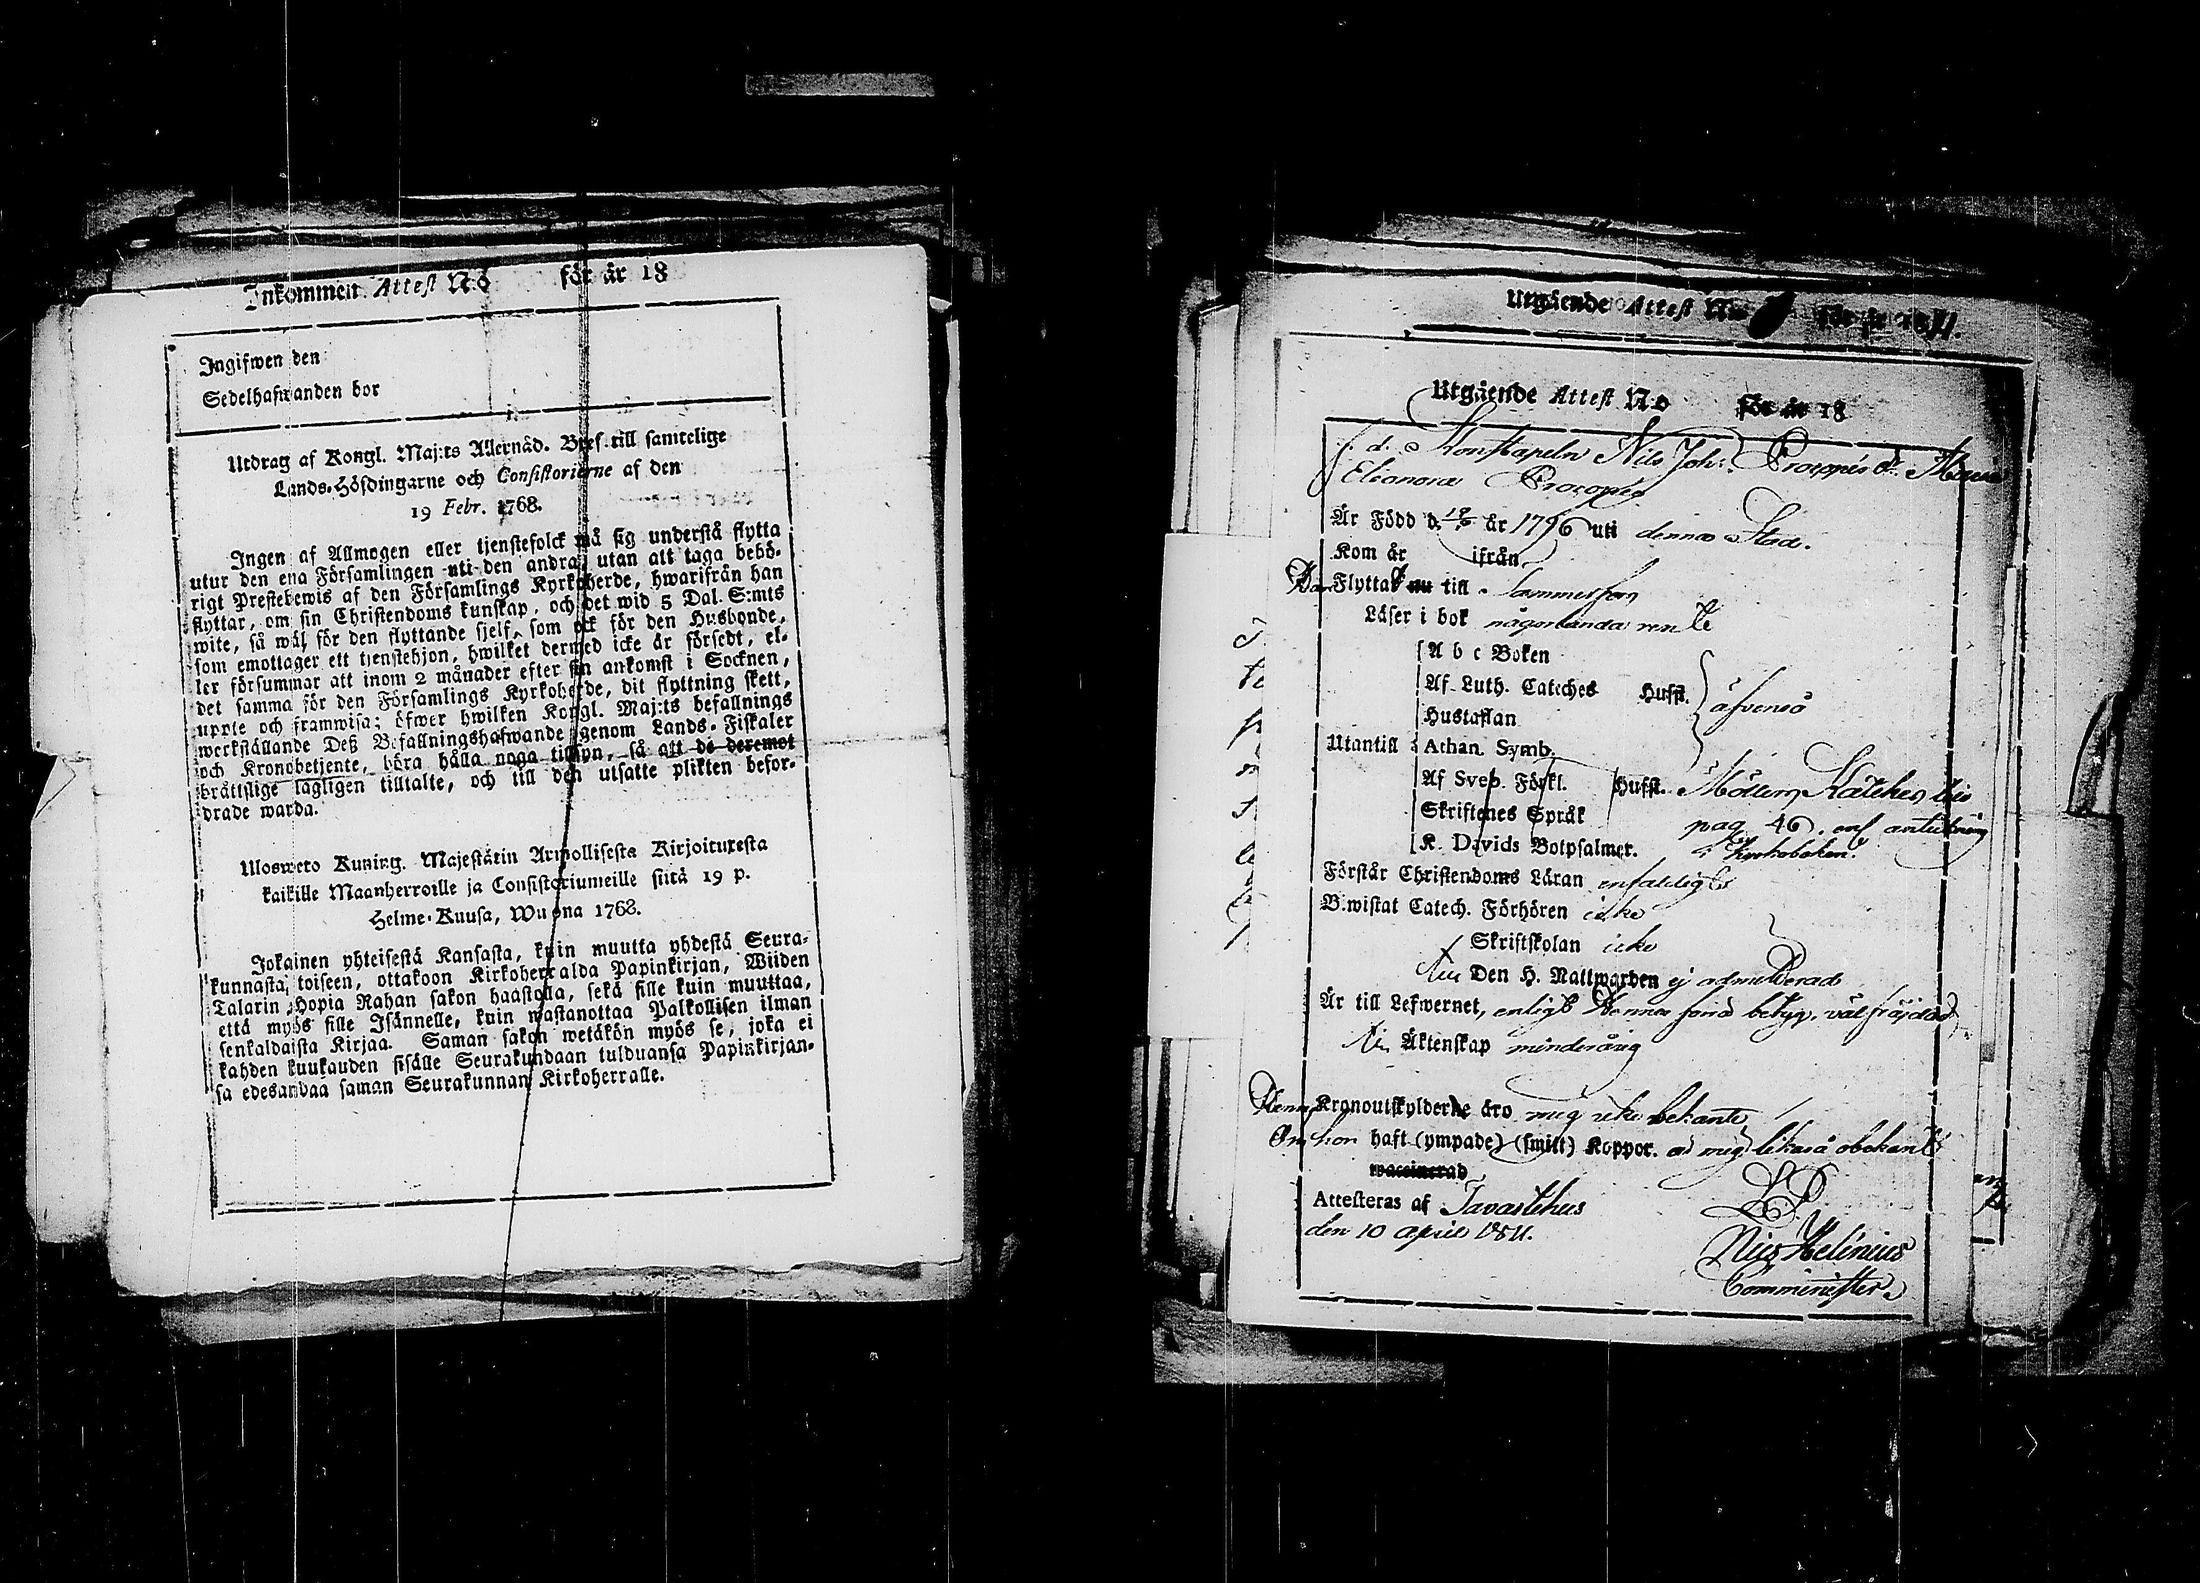 Inkommen Attest No för år 18
Ingifwen den
Sedelhafwanden bor
Utdrag af Kongl. Maj:ts Allernåd. Bref till samtelige
Lands-Höfdingarne och Consistorierne af den
19 Febr. 1768.
Ingen af Allmogen eller tjenstefolck må sig understå flytta
utur den ena Församlingen uti den andra, utan att taga behö-
rigt Prestebewis af den Församlings Kyrkoherde, hwarifrån han
flyttar, om sin Christendoms kunskap, och det wid 5 Dal. S:mts
wite, så wäl för den flyttande sjelf, som ock för den Husbonde,
som emottager ett tjenstehjon, hwilket dermed icke är försedt, el-
ler försummar att inom 2 månader efter sin ankomst i Socknen,
det samma för den Församlings Kyrkoherde, dit flyttning skett,
uppte och framwisa; öfwer hwilken Kongl. Maj:ts befallnings
werkställande Deß Befallningshafwande genom Lands-Fiskaler
och Kronobetjente, böra hålla noga tilsyn, så att de deremot
bråttslige lagligen tilltalte, och till den utsatte plikten befor-
drade warda.
Ulosweto Kuning. Majestätin Armollisesta Kirjoituxesta
kaikille Maanherroille ja Consistoriumeille siitä 19 p.
Helme-Kuusa, Wuona 1768.
Jokainen yhteisestä Kansasta, kuin muutta yhdestä Seura-
kunnasta toiseen, ottakoon Kirkoherralda Papinkirjan, Wiiden
Talarin Hopia Rahan sakon haastolla, sekä sille kuin muuttaa,
että myös sille Isännelle, kuin wastanottaa Palkollisen ilman
senkaldaista Kirjaa. Saman sakon wetäkön myös se, joka ei
kahden kuukauden sisälle Seurakundaan tulduansa Papinkirjan-
sa edesandaa saman Seurakunnan Kirkoherralle.
Utgående Attest No för år 1811.
Utgående Attest No för år 18
f. d. Konstapeln Nils Joh: Procopés dr. Maria
Eleonora Procopée
Är Född d. år 1796 uti denna Stad.
Kom år ifrån
Har Flyttat nu till Tammerfors
Läser i bok någorlunda rent
A b c Boken
Af Luth. Cateches Hufst. äfvenså
Hustaflan
Utantill Athan. Symb.
Af Sveb. Förkl. Hufst. Möllers Katekes till
Skriftenes Språk pag 46. enl anteckning
K. Davids Botpsalmer. i Kyrkoboken.
Förstår Christendoms Läran enfaldigt
Biwistat Catech. Förhören icke
Skriftskolan icke
Till Den H. Nattwarden ej admitterad
Är till Lefwernet, enligt Hennes förra betyg, välfräjdad
Till Äktenskap minderårig
Hennes Kronoutskylder äro mig icke bekante
Om hon haft (ympade) (smitt) Koppor. är mig likaså obekant
waccinerad
Attesteras af Tavastehus
den 10 April 1811.
Nils Helenius
Comminister